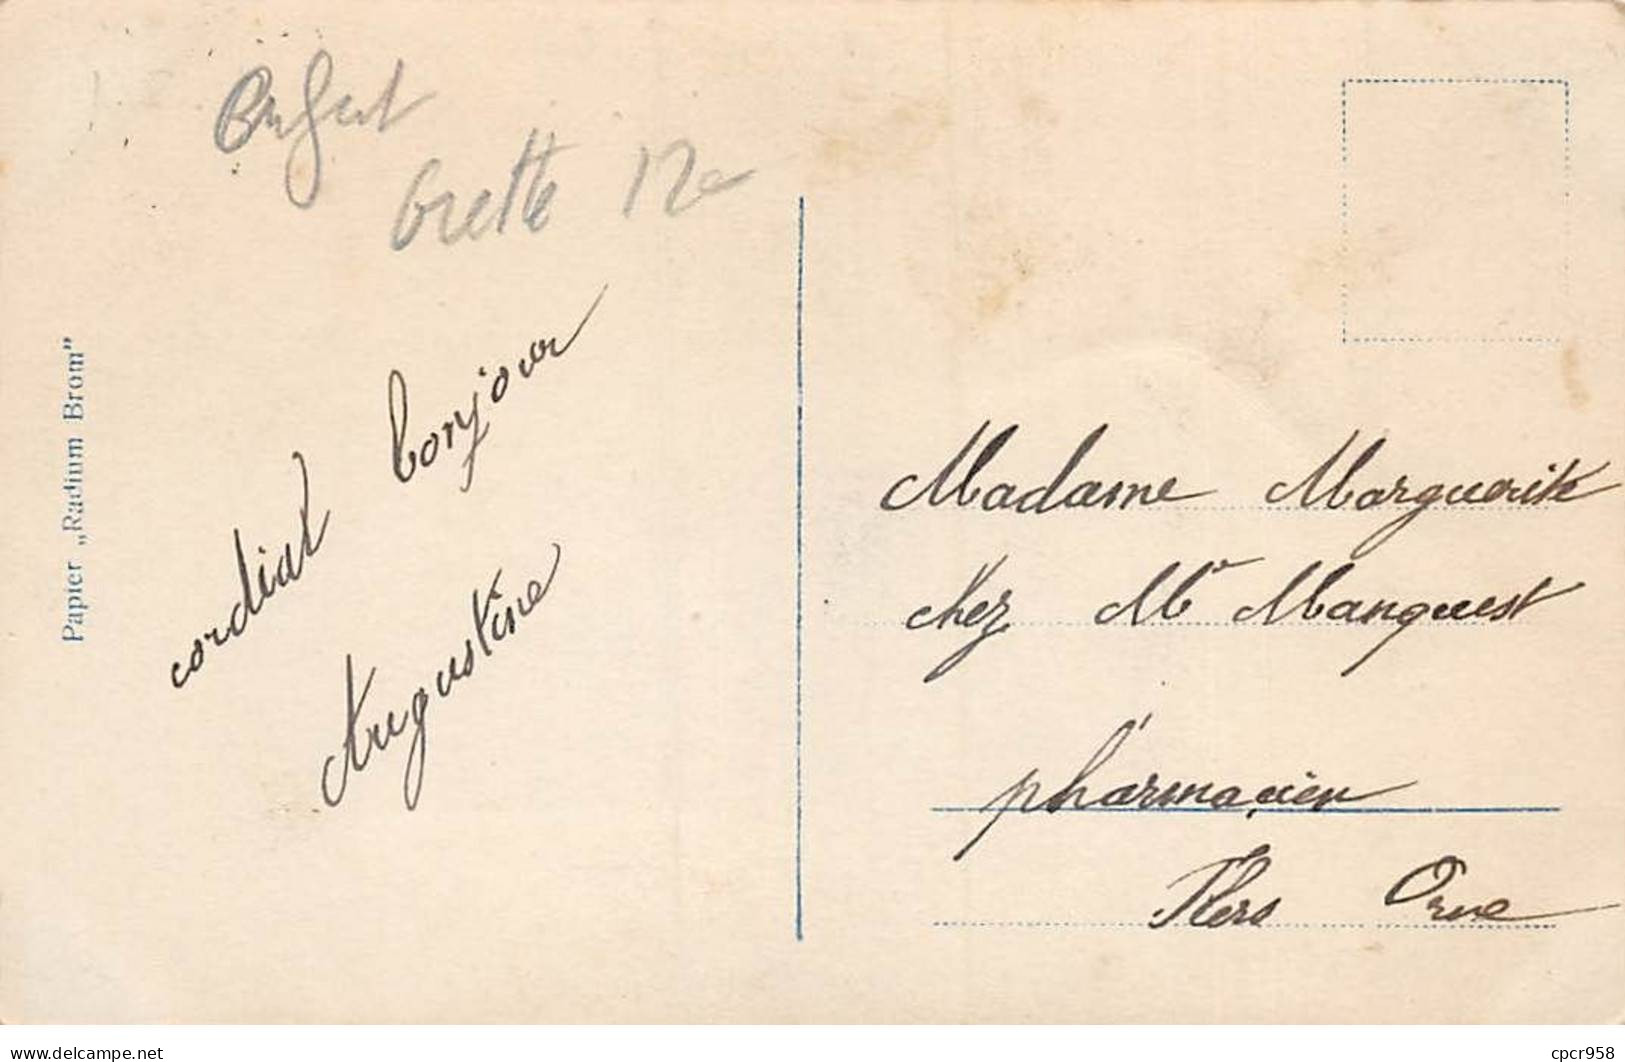 Enfant
Grette 12e
Papier „Radium Brom"
cordial bonjour
Augustine
Madame Marguerite
chez Mr Manguest
pharmacien
Flers Orne
delcampe.net
cpcr958